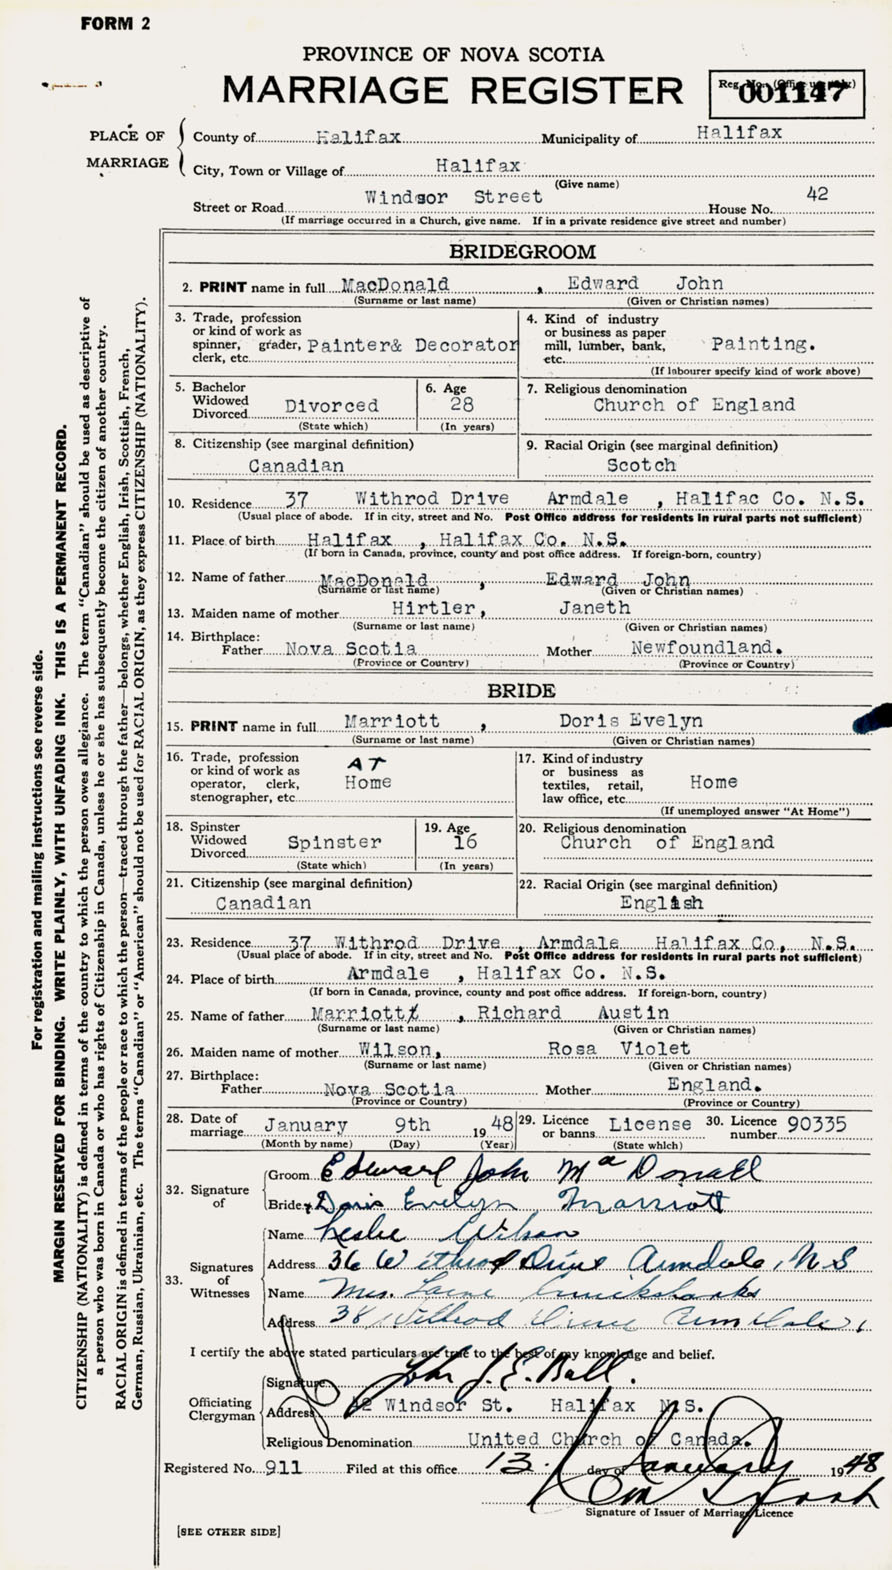 FORM 2
PROVINCE OF NOVA SCOTIA
MARRIAGE REGISTER
Reg. No. (Office use only)
001147
PLACE OF MARRIAGE
County of Halifax Municipality of Halifax
City, Town or Village of Halifax
(Give name)
Street or Road Windsor Street House No. 42
(If marriage occured in a Church, give name. If in a private residence give street and number)
BRIDEGROOM
2. PRINT name in full MacDonald , Edward John
(Surname or last name) (Given or Christian names)
3. Trade, profession or kind of work as spinner, grader, clerk, etc. Painter& Decorator
4. Kind of industry or business as paper mill, lumber, bank, etc. Painting.
(If labourer specify kind of work above)
5. Bachelor Widowed Divorced Divorced
(State which)
6. Age 28
(In years)
7. Religious denomination
Church of England
8. Citizenship (see marginal definition)
Canadian
9. Racial Origin (see marginal definition)
Scotch
10. Residence 37 Withrod Drive Armdale , Halifac Co. N.S.
(Usual place of abode. If in city, street and No. Post Office address for residents in rural parts not sufficient)
11. Place of birth Halifax , Halifax Co. N.S.
(If born in Canada, province, county and post office address. If foreign-born, country)
12. Name of father MacDonald , Edward John
(Surname or last name) (Given or Christian names)
13. Maiden name of mother Hirtler, Janeth
(Surname or last name) (Given or Christian names)
14. Birthplace:
Father Nova Scotia Mother Newfoundland.
(Province or Country) (Province or Country)
BRIDE
15. PRINT name in full Marriott , Doris Evelyn
(Surname or last name) (Given or Christian names)
16. Trade, profession or kind of work as operator, clerk, stenographer, etc. AT Home
17. Kind of industry or business as textiles, retail, law office, etc. Home
(If unemployed answer "At Home")
18. Spinster Widowed Divorced Spinster
(State which)
19. Age 16
(In years)
20. Religious denomination
Church of England
21. Citizenship (see marginal definition)
Canadian
22. Racial Origin (see marginal definition)
English
23. Residence 37 Withrod Drive , Armdale Halifax Co, N.S.
(Usual place of abode. If in city, street and No. Post Office address for residents in rural parts not sufficient)
24. Place of birth Armdale , Halifax Co. N.S.
(If born in Canada, province, county and post office address. If foreign-born, country)
25. Name of father Marriott , Richard Austin
(Surname or last name) (Given or Christian names)
26. Maiden name of mother Wilson, Rosa Violet
(Surname or last name) (Given or Christian names)
27. Birthplace:
Father Nova Scotia Mother England.
(Province or Country) (Province or Country)
28. Date of marriage January 9th 1948
(Month by name) (Day) (Year)
29. Licence or banns License
(State which)
30. Licence number 90335
32. Signature of
Groom Edward John MacDonald
Bride Doris Evelyn Marriott
33. Signatures of Witnesses
Name Leslie Wilson
Address 36 Withrod Drive Armdale, N S
Name Mrs.
Address 38 Withrod Drive Armdale
I certify the above stated particulars are true to the best of my knowledge and belief.
Officiating Clergyman
Signature John J. E. Ball.
Address 42 Windsor St. Halifax N.S.
Religious Denomination United Church of Canada.
Registered No. 911 Filed at this office 13. day of January 1948
Signature of Issuer of Marriage Licence
[SEE OTHER SIDE]
For registration and mailing instructions see reverse side.
MARGIN RESERVED FOR BINDING. WRITE PLAINLY, WITH UNFADING INK. THIS IS A PERMANENT RECORD.
CITIZENSHIP (NATIONALITY) is defined in terms of the country to which the person owes allegiance. The term "Canadian" should be used as descriptive of
a person who was born in Canada or who has rights of Citizenship in Canada, unless he or she has subsequently become the citizen of another country.
RACIAL ORIGIN is defined in terms of the people or race to which the person—traced through the father—belongs, whether English, Irish, Scottish, French,
German, Russian, Ukrainian, etc. The terms "Canadian" or "American" should not be used for RACIAL ORIGIN, as they express CITIZENSHIP (NATIONALITY).